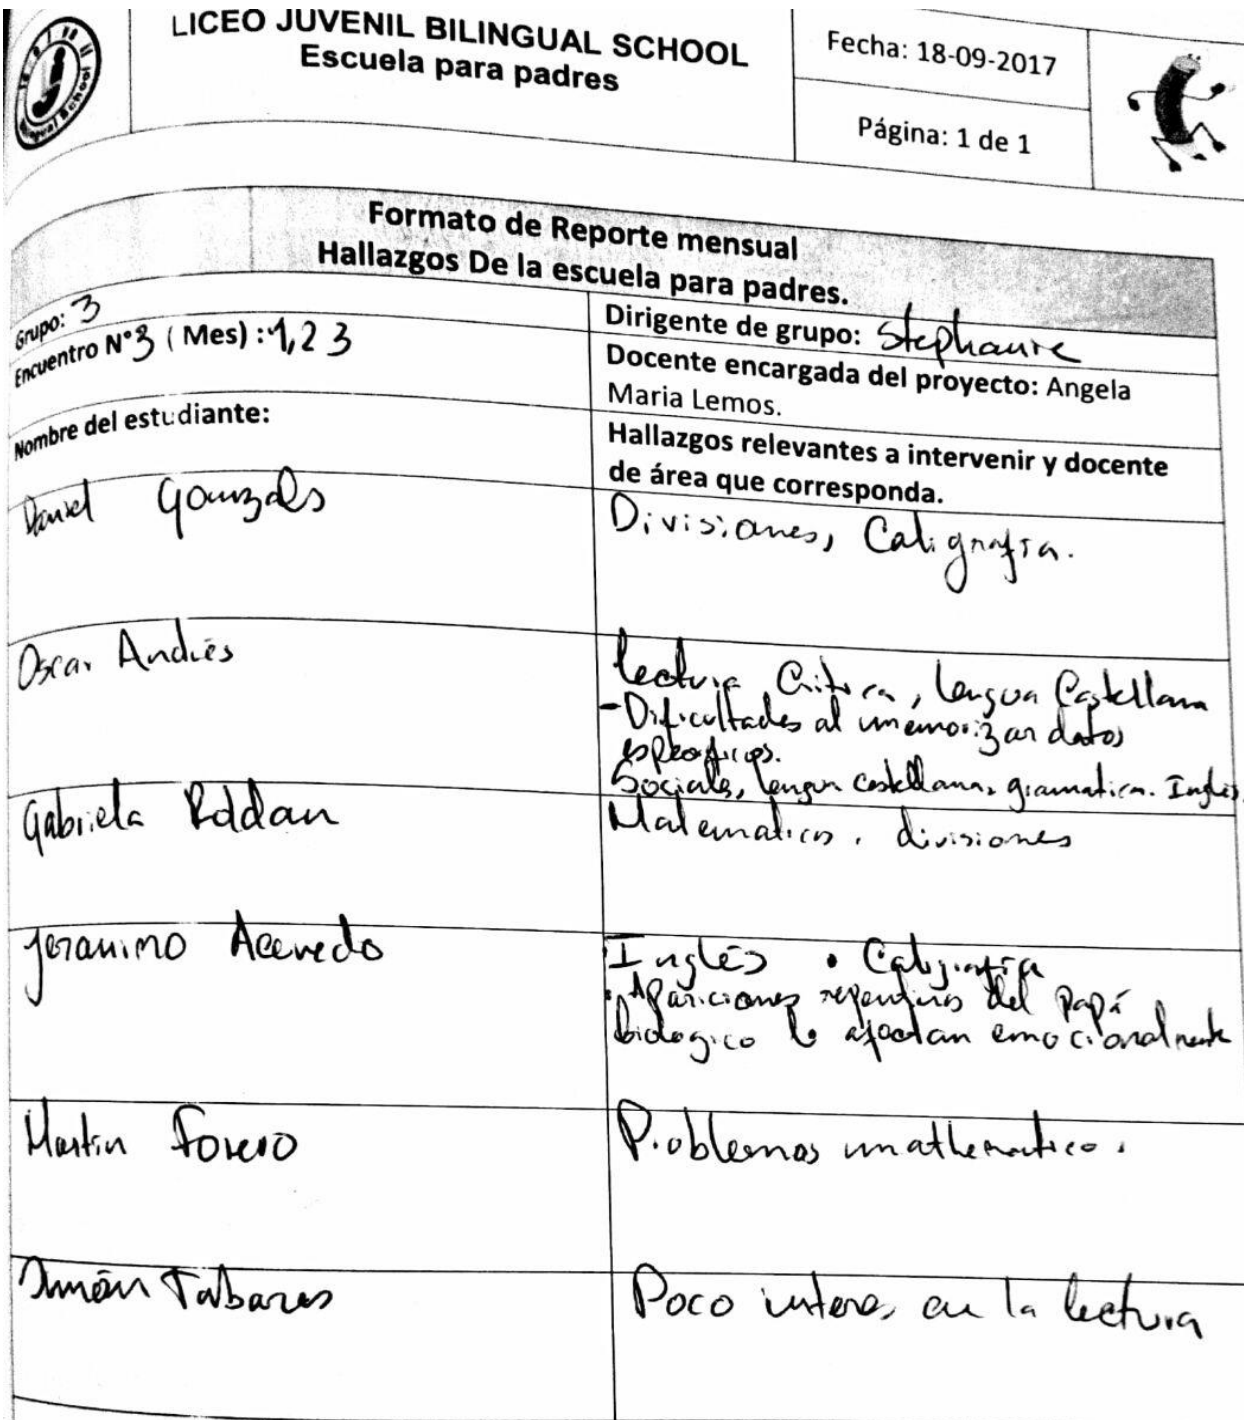 LICEO JUVENIL BILINGUAL SCHOOL
Escuela para padres
Fecha: 18-09-2017
Página: 1 de 1
Bilingual School
Formato de Reporte mensual
Hallazgos De la escuela para padres.
Grupo: 3
Encuentro N°3 (Mes) : 1,2 3
Dirigente de grupo: Stephanie
Docente encargada del proyecto: Angela
Maria Lemos.
Nombre del estudiante:
Hallazgos relevantes a intervenir y docente
de área que corresponda.
Daniel Gonzals
Divisiones, Caligrafía.
Oscar Andrés
lectura Critica, lengua Castellana
- Dificultades al memorizar datos
especificos.
Sociales, lengua castellana, gramatica. Inglés.
Gabriela Roldan
Matematicas. divisiones
Jeronimo Acevedo
Inglés • Caligrafía
• Apariciones repentinas del Papá
biologico lo afectan emocionalmente
Martin Forero
Problemas mathematico.
Simón Tabares
Poco interes en la lectura